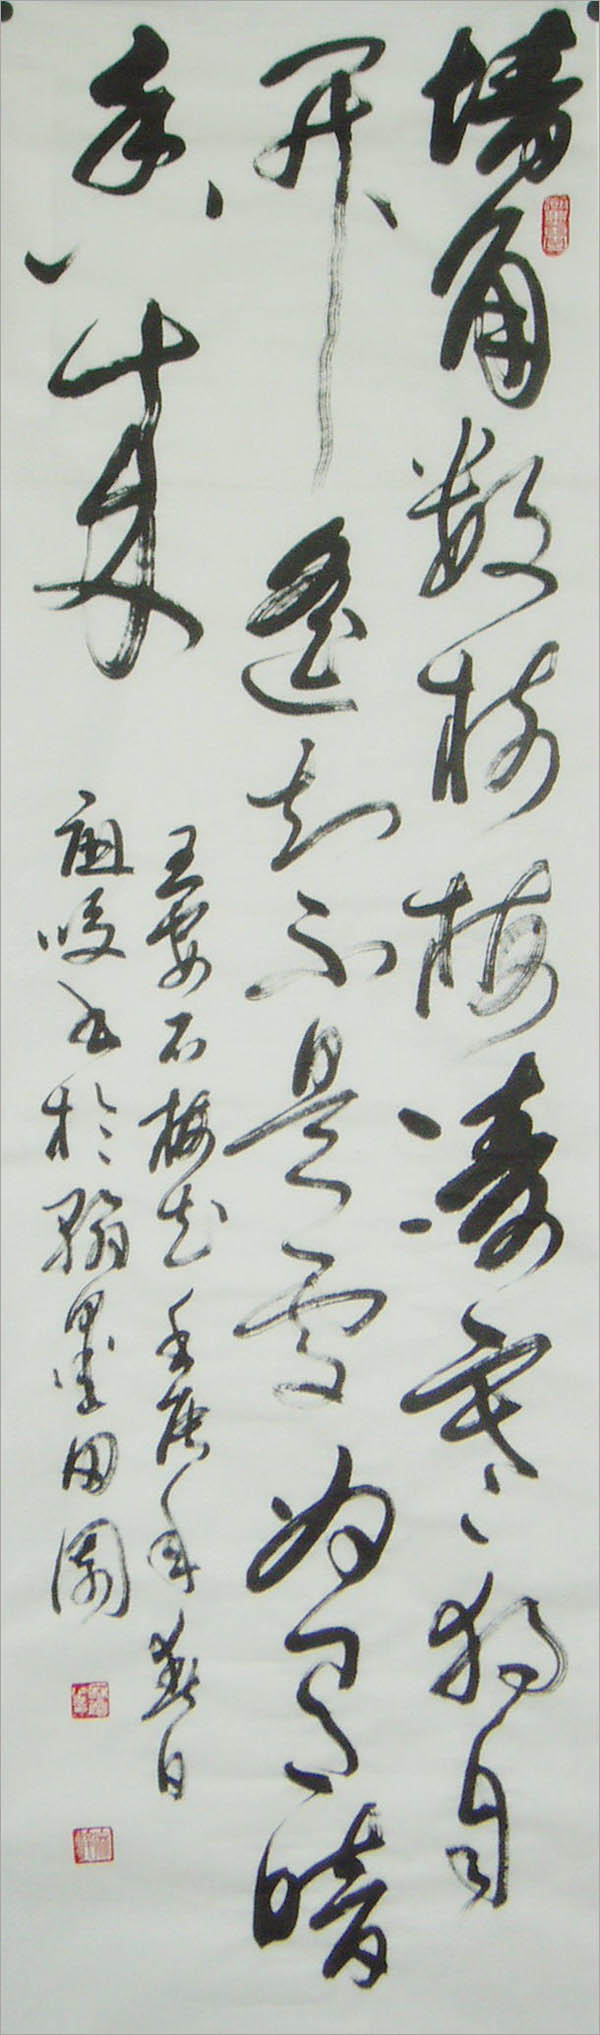 墙角数枝梅凌寒独自
开遥知不是雪为有暗
香来
王安石梅花壬辰年春日
书於翰墨田园